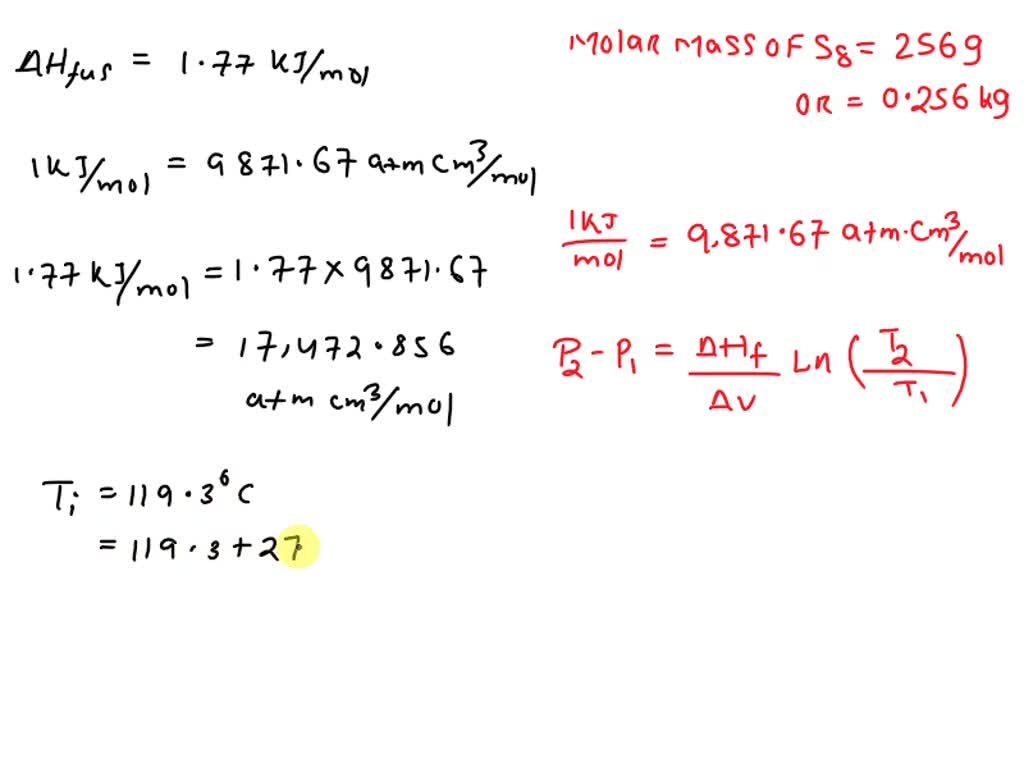 ΔHfus = 1.77 KJ/mol
1KJ/mol = 9871.67 atm cm³/mol
1.77 KJ/mol = 1.77 × 9871.67
= 17,472.856
atm cm³/mol
Ti = 119.3⁰C
= 119.3 + 27
Molar mass of S8 = 256g
OR = 0.256 kg
1KJ/mol = 9,871.67 atm.cm³/mol
P2 - P1 = ΔHf/ΔV Ln (T2/T1)